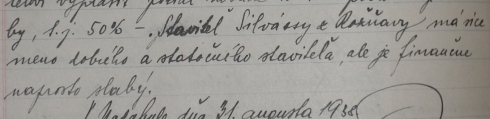 by, t.j. 50% – Staviteľ Silvássy z Rožňavy má síce
meno dobrého a statočného staviteľa, ale je finančne
naprosto slabý.
dňa 31. augusta 1938